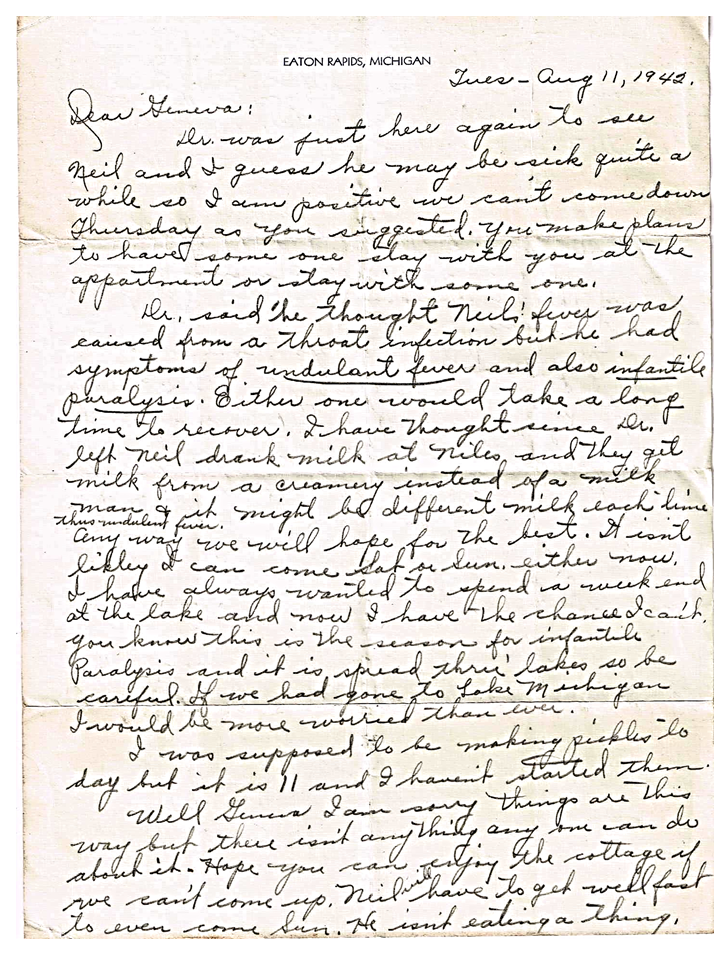 EATON RAPIDS, MICHIGAN
Tues - Aug 11, 1942.
Dear Geneva:
Dr. was just here again to see
Neil and I guess he may be sick quite a
while so I am positive we can't come down
Thursday as you suggested. You make plans
to have some one stay with you at the
appartment or stay with some one.
Dr. said he thought Neils' fever was
caused from a throat infection but he had
symptoms of undulant fever and also infantile
paralysis. Either one would take a long
time to recover. I have thought since Dr.
left Neil drank milk at Niles and they get
milk from a creamery instead of a milk
man & it might be different milk each time
thus undulent fever.
Any way we will hope for the best. It isn't
likley I can come Sat or Sun. either now.
I have always wanted to spend a week end
at the lake and now I have the chance I can't.
you know this is the season for infantile
Paralysis and it is spread thru' lakes so be
careful. If we had gone to Lake Michigan
I would be more worried than ever.
I was supposed to be making pickles to
day but it is 11 and I haven't started them.
Well Geneva I am sorry things are this
way but there isn't anything any one can do
about it. Hope you can enjoy the cottage if
we can't come up. Neil will have to get well fast
to even come Sun. He isn't eating a thing.